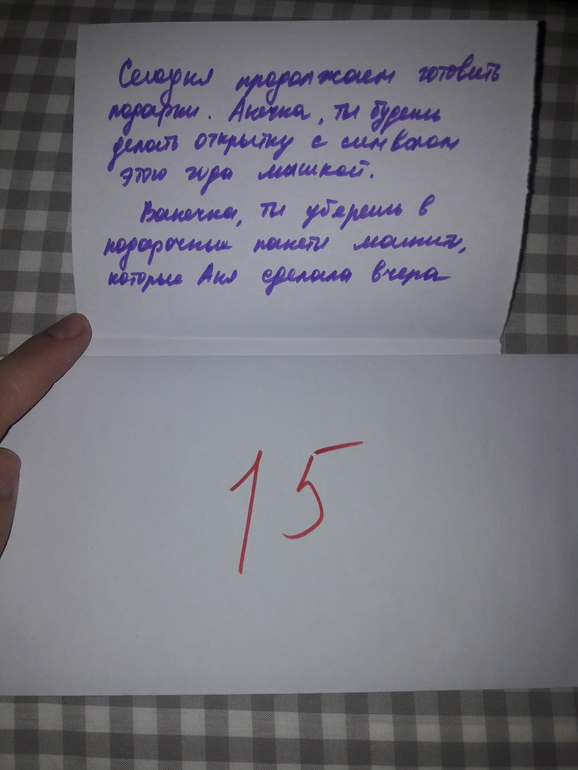 Сегодня продолжаем готовить
подарки. Анечка, ты будешь
делать открытку с символом
этого года мышкой.
Ванечка, ты уберешь в
подарочные пакеты магниты,
которые Аня сделала вчера
15